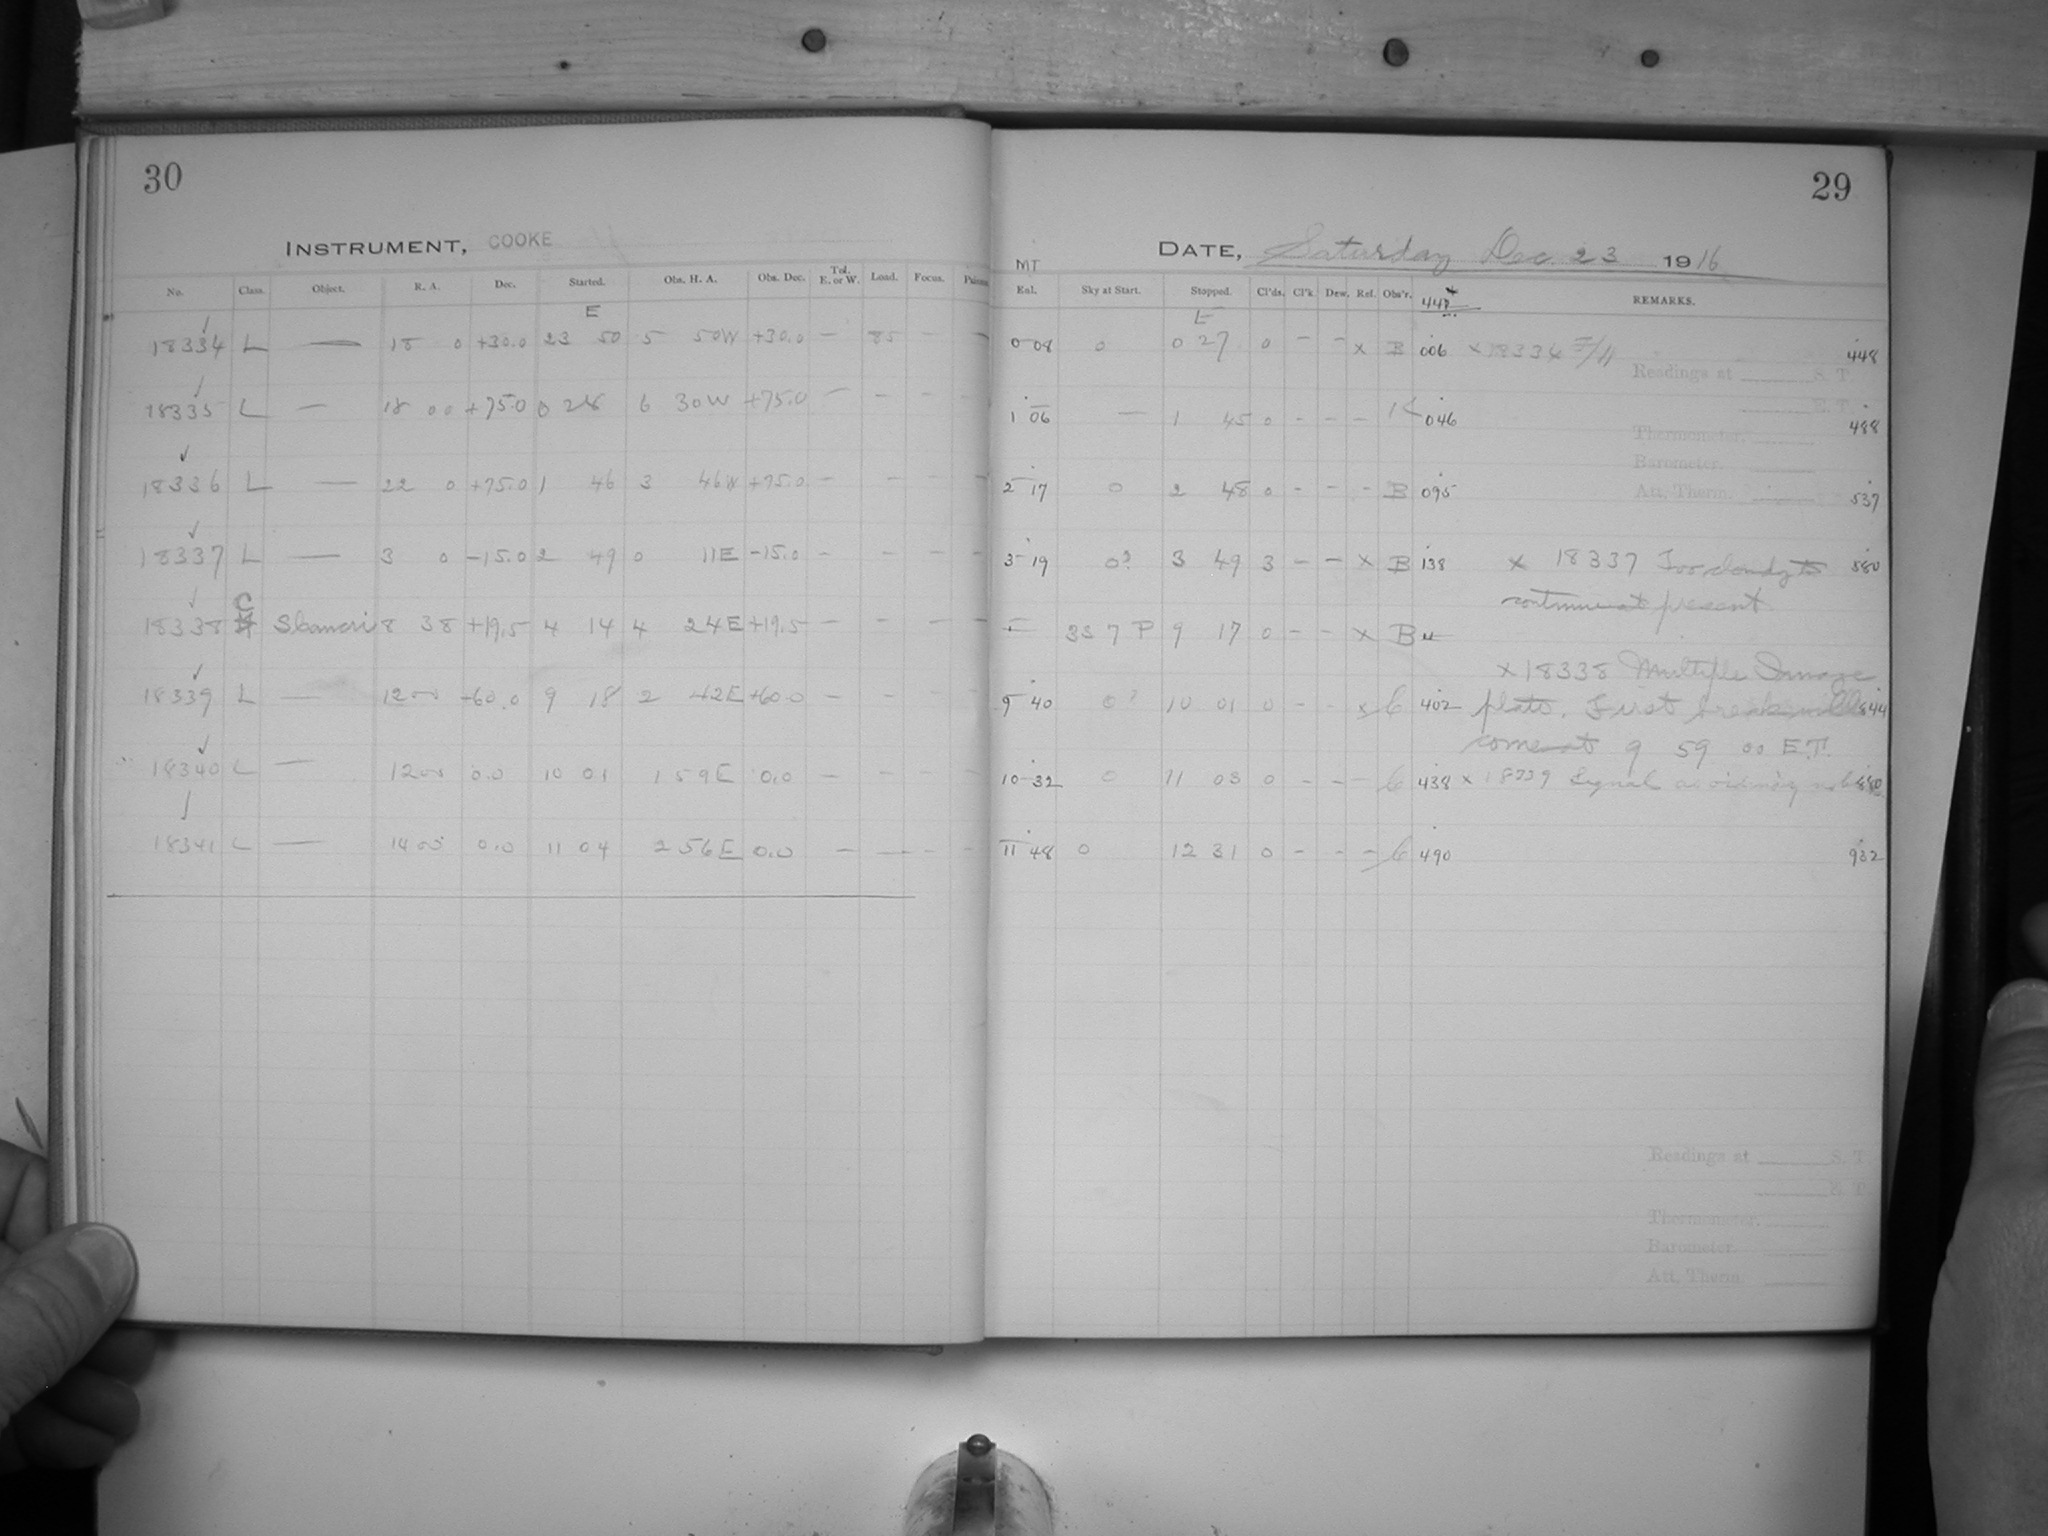 30
INSTRUMENT, COOKE
No. Class. Object. R. A. Dec. Started. Obs. H. A. Obs. Dec. Tel. E. or W. Load. Focus.
E
18334 L — 18 0 +30.0 23 50 5 50W +30.0 — 85 — —
18335 L — 18 00 +75.0 0 28 6 30W +75.0 — — — —
18336 L — 22 0 +75.0 1 46 3 46W +75.0 — — — —
18337 L — 3 0 -15.0 2 49 0 11E -15.0 — — — —
18338 C 8 38 +19.5 4 14 4 24E +19.5 — — — —
18339 L — 12 00 +60.0 9 18 2 42E +60.0 — — — —
18340 L — 12 00 0.0 10 01 1 59E 0.0 — — — —
18341 L — 14 00 0.0 11 04 2 56E 0.0 — — — —
29
DATE, Saturday Dec 23 1916
MT
Eal. Sky at Start. Stopped. Cl'ds. Cl'k. Dew. Rel. Obs'r. 447 REMARKS.
E
0 08 0 0 27 0 - - x B 006 x 18334 448
Readings at S. T.
E. T.
1 06 — 1 45 0 - - - 046 488
Thermometer.
Barometer.
2 17 0 2 48 0 - - - B 095 Att. Therm. 537
3 19 0? 3 49 3 - - x B 138 x 18337 Too cloudy to 580
continue at present
— 3S 7 P 9 17 0 - - x B
x 18338 Multiple Image
9 40 0? 10 01 0 - - x 6 402 plate. First break will 844
come at 9 59 00 E.T.
10 32 0 11 03 0 - - - 6 438 x 18339 Signal 880
11 48 0 12 31 0 - - - 6 490 932
Readings at S. T.
E. T.
Thermometer.
Barometer.
Att. Therm.